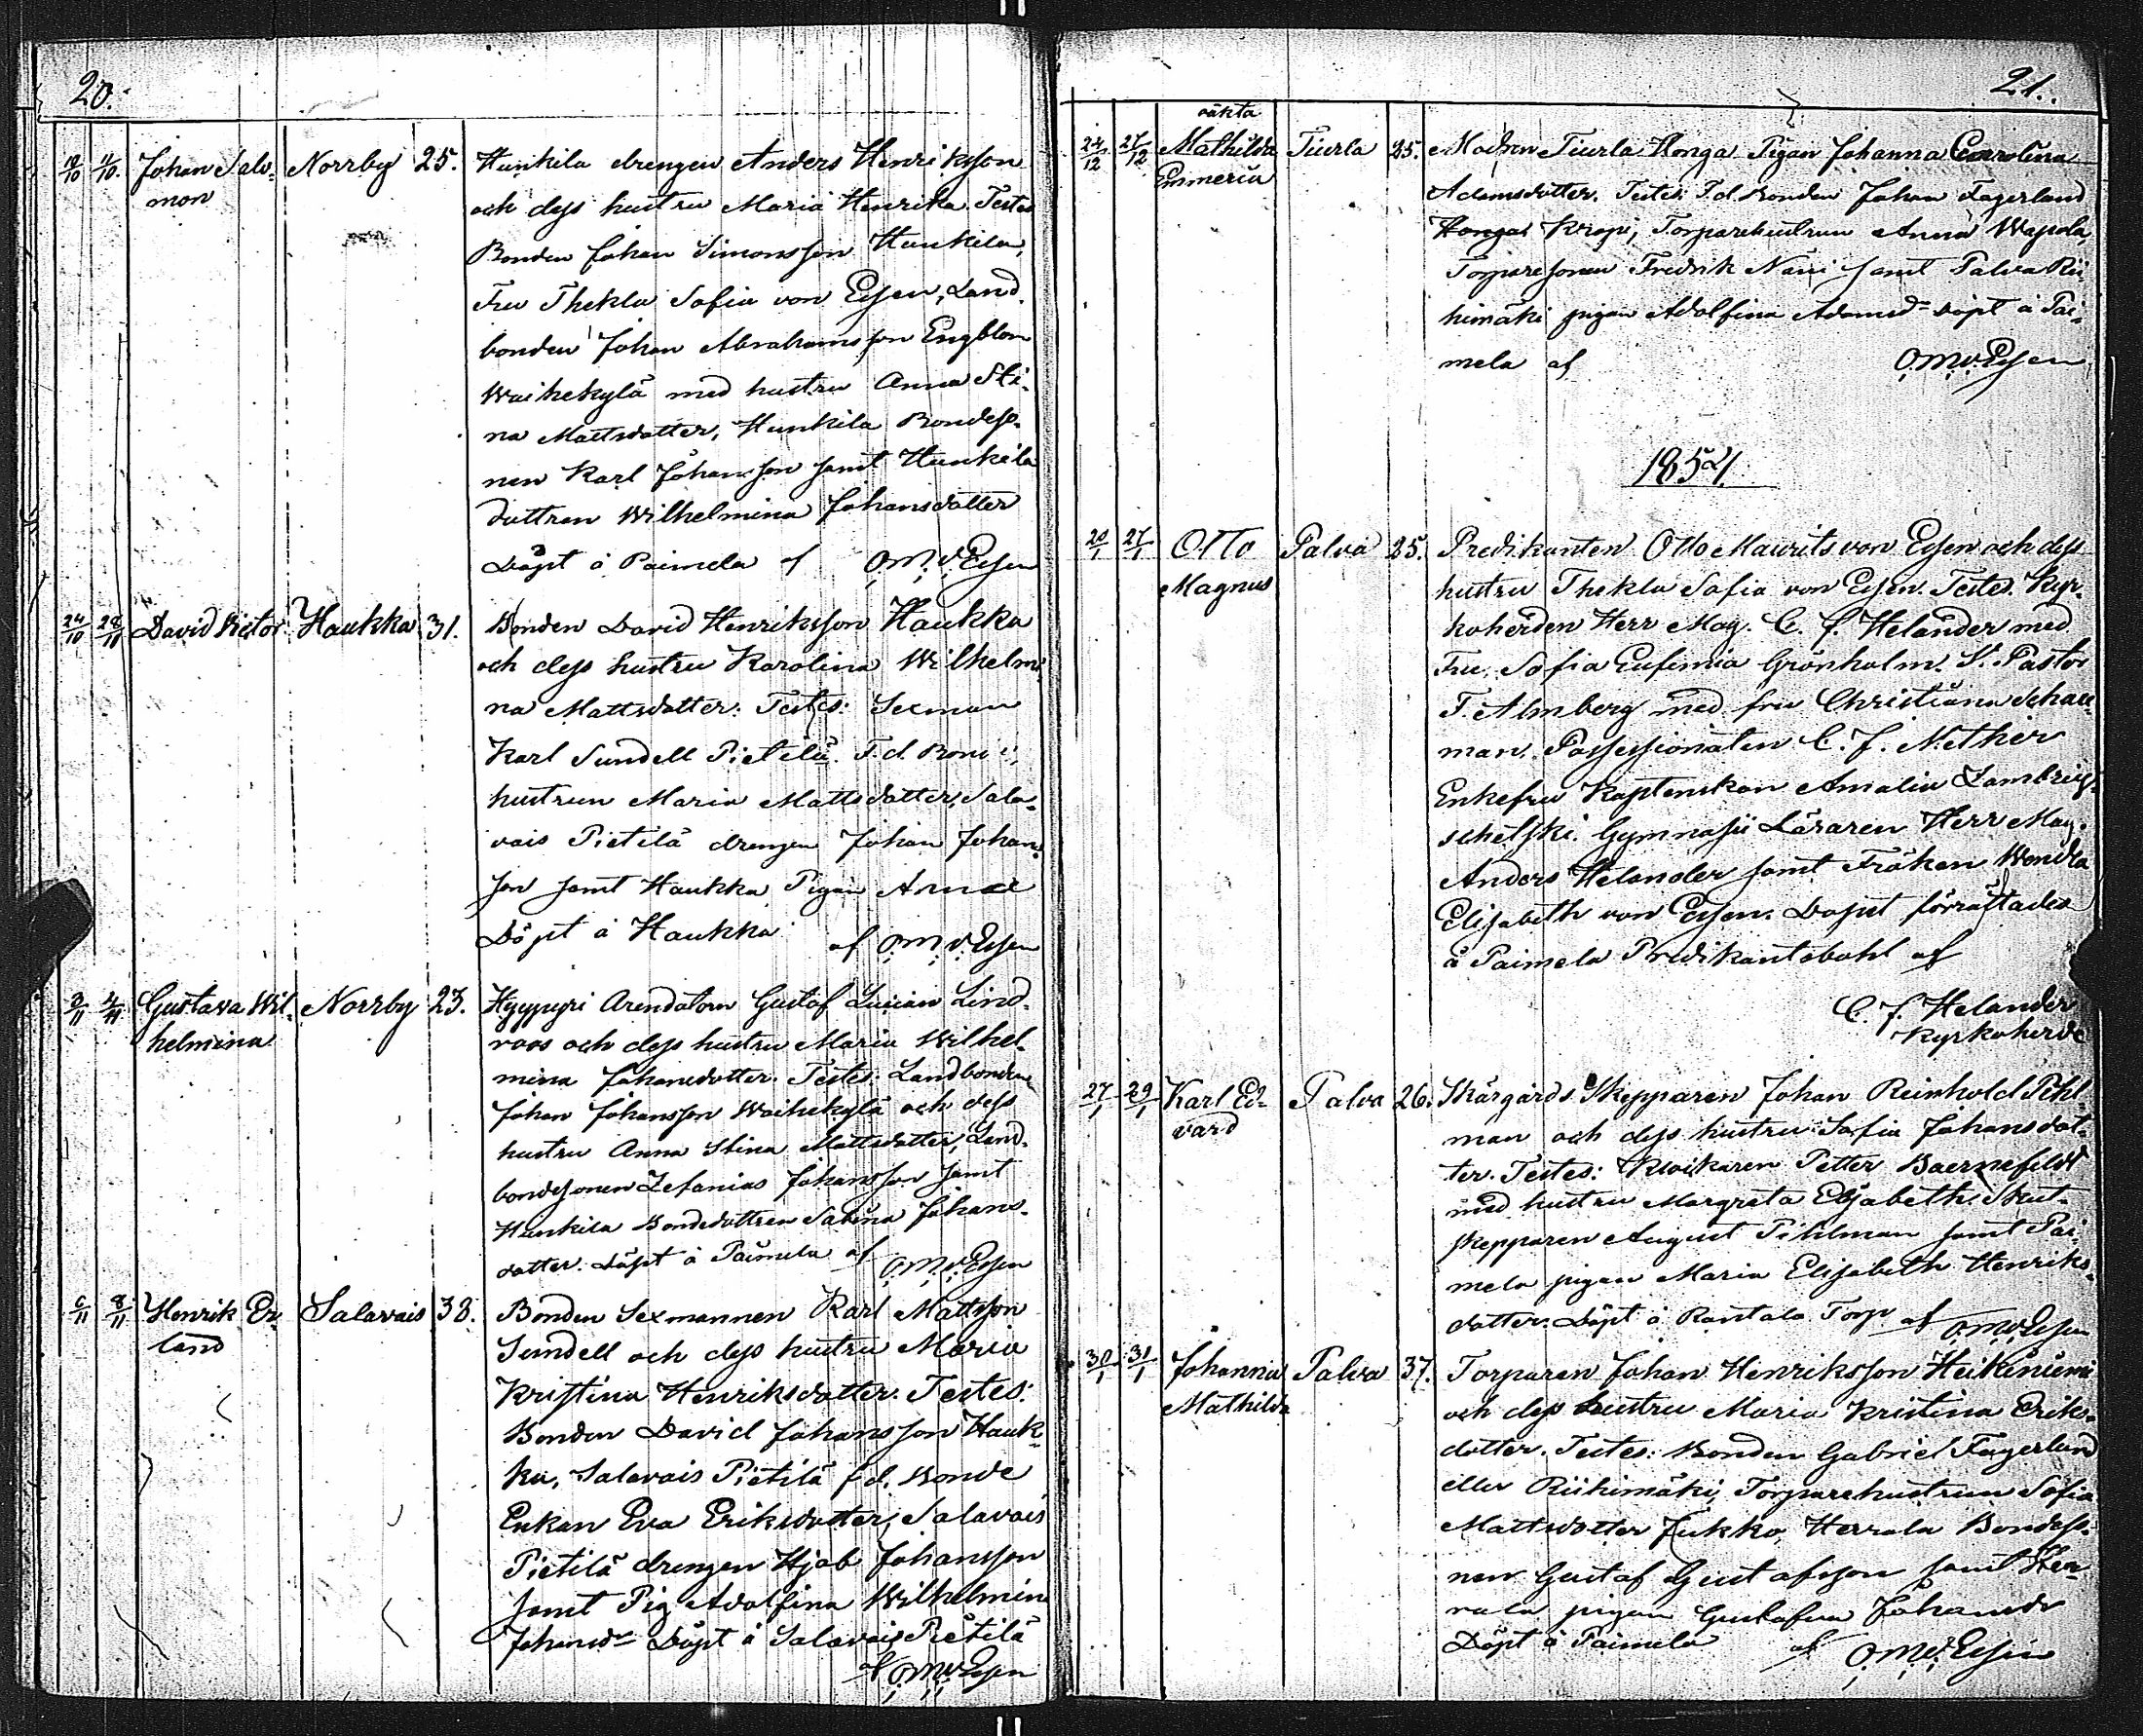 20.
10/10 11/10. Johan Salo- Norrby 25. Hunkila drengen Anders Henriksson
mon och dess hustru Maria Henrika. Testes
Bonden Johan Simonsson Hunkila,
Fru Thekla Sofia von Essen, Land
bonden Johan Abrahamsson Engblom
Waihekylä med hustru Anna Sti-
na Mattsdotter, Hunkila Bondeso-
nen Karl Johansson samt Hunkila
dottren Wilhelmina Johansdotter
Döpt å Paimela af O.M.v.Essen
24/10 David Victor Haukka 31. Bonden David Henriksson Haukka
och dess hustru Karolina Wilhelmi
na Mattsdotter. Testes: Sexman
Karl Sundell Pietilä. F.d. Bond
hustrun Maria Mattsdotter, Sala-
vais Pietilä drengen Johan Johans
son samt Haukka Pigan Anna
Döpt å Haukka af O.M.v.Essen
3/11 4/11 Gustava Wil- Norrby 23. Hyypyri Arendatorn Gustaf Lind-
helmina roos och dess hustru Maria Wilhel-
mina Johansdotter. Testes: Landbonden
Johan Johansson Waihekylä och dess
hustru Anna Stina Mattsdotter, Land-
bondesonen Zefanias Johansson samt
Hunkila Bondedottren Sabina Johans-
dotter. Döpt å Paimela af O.M.v.Essen
6/11 8/11 Henrik Er Salavais 38. Bonden Sexmannen Karl Mattsson
land Sundell och dess hustru Maria
Kristina Henriksdotter. Testes:
Bonden David Johansson Hauk-
ka, Salavais Pietilä f.d. Bonde
Enkan Eva Eriksdotter, Salavais
Pietilä drengen Hjob Johansson
samt Pig Adolfina Wilhelmin
Johansdr Döpt å Salavais Pietilä
af O.M.v.Essen
21.
oäkta
24/12 27/12 Mathilda Tiurla 25. Modren Tiurla Honga Pigan Johanna Carolina
Emmeria Adamsdotter. Testes: F.d. Bonden Johan Fagerland
Honga Knopi, Torparehustrun Anna Wapola,
Torparesonen Fredrik Näsi samt Palva Rii
himäki pigan Adolfina Adamsd- döpt å Pai-
mela af O.M.v.Essen
1854
20/1 27/1 Otto Palva 25. Predikanten Otto Maurits von Essen och dess
Magnus hustru Thekla Sofia von Essen. Testes. Kyr-
koherden Herr Mag. C. J. Helander med
Fru Sofia Eufemia Grönholm. V. Pastor
F. Almberg med fru Christiana Schau-
man. Possessionaten C. J. Nether
Enkefru Kaptenskan Amalia
Gymnasii Läraren Herr Mag.
Anders Helander samt Fröken Wendla
Elisabeth von Essen. Dopet förrättades
å Paimela Predikantsbohl af
C. J. Helander
Kyrkoherde
27/1 29/1 Karl Ed- Palva 26. Skärgårds Skepparen Johan Reinhold Pihl
vard man och dess hustru Sofia Johansdot-
ter. Testes: Klockaren Petter Baernefeldt
med hustru Margreta Elisabeth. Skut-
skepparen August Pihlman samt Pai-
mela pigan Maria Elisabeth Henriks-
dotter. Döpt å Rantala Torp af O.M.v.Essen
30/1 31/1 Johanna Palva 37. Torparen Johan Henriksson Heikiniemi
Mathilda och dess hustru Maria Kristina Eriks-
dotter. Testes: Bonden Gabriel Fagerlund
eller Riihimäki, Torparehustrun Sofia
Mattsdotter Jukko, Herrala Bondeso-
nen Gustaf Gustafsson samt Her-
rala pigan Gustafva Johansdr
Döpt å Paimela af O.M.v.Essen